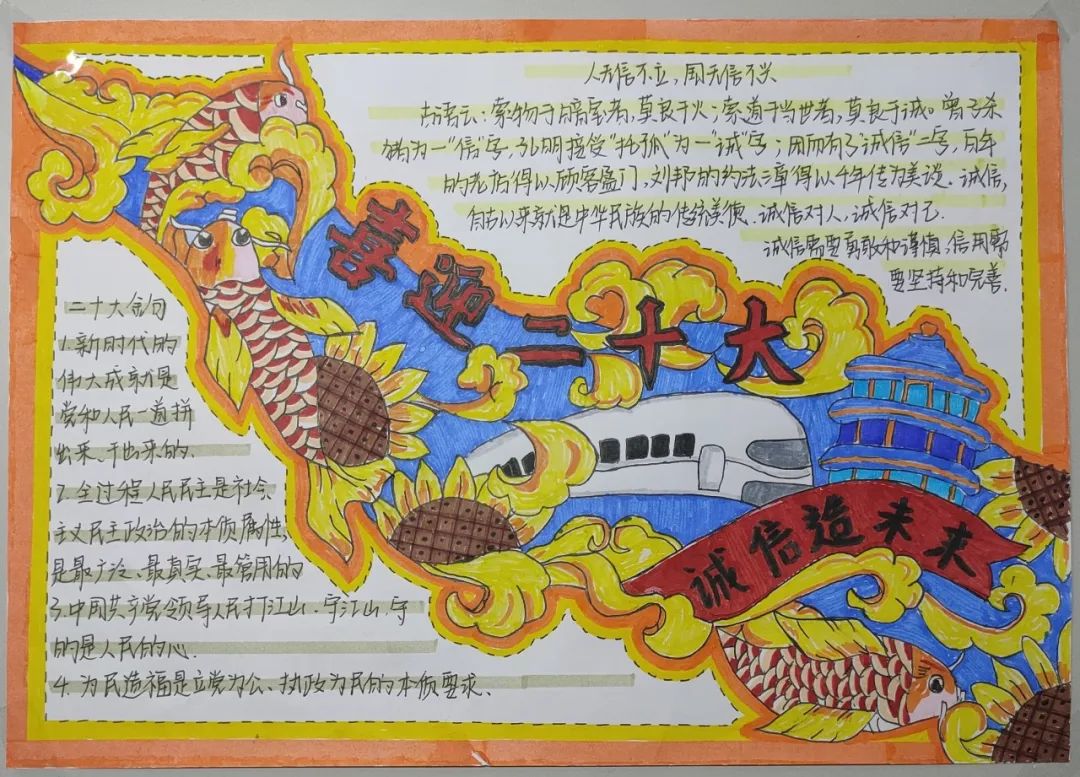 人无信不立，国无信不兴
古语云：索物于暗室者，莫良于火；索道于当世者，莫良于诚。曾子杀
猪为一"信"字，孔明接受"托孤"为一"诚"字；因而有了"诚信"二字，百年
的老店得以顾客盈门，刘邦的约法三章得以千年传为美谈。诚信，
自古以来就是中华民族的传统美德。诚信对人，诚信对己.
诚信需要勇敢和谨慎 信用需
要坚持和完善.
喜迎二十大
二十大金句
1.新时代的
伟大成就是
党和人民一道拼
出来、干出来的.
2.全过程人民民主是社会
主义民主政治的本质属性,
是最广泛、最真实、最管用的
3.中国共产党领导人民打江山、守江山、守
的是人民的心.
4.为民造福是立党为公、执政为民的本质要求、
诚信造未来